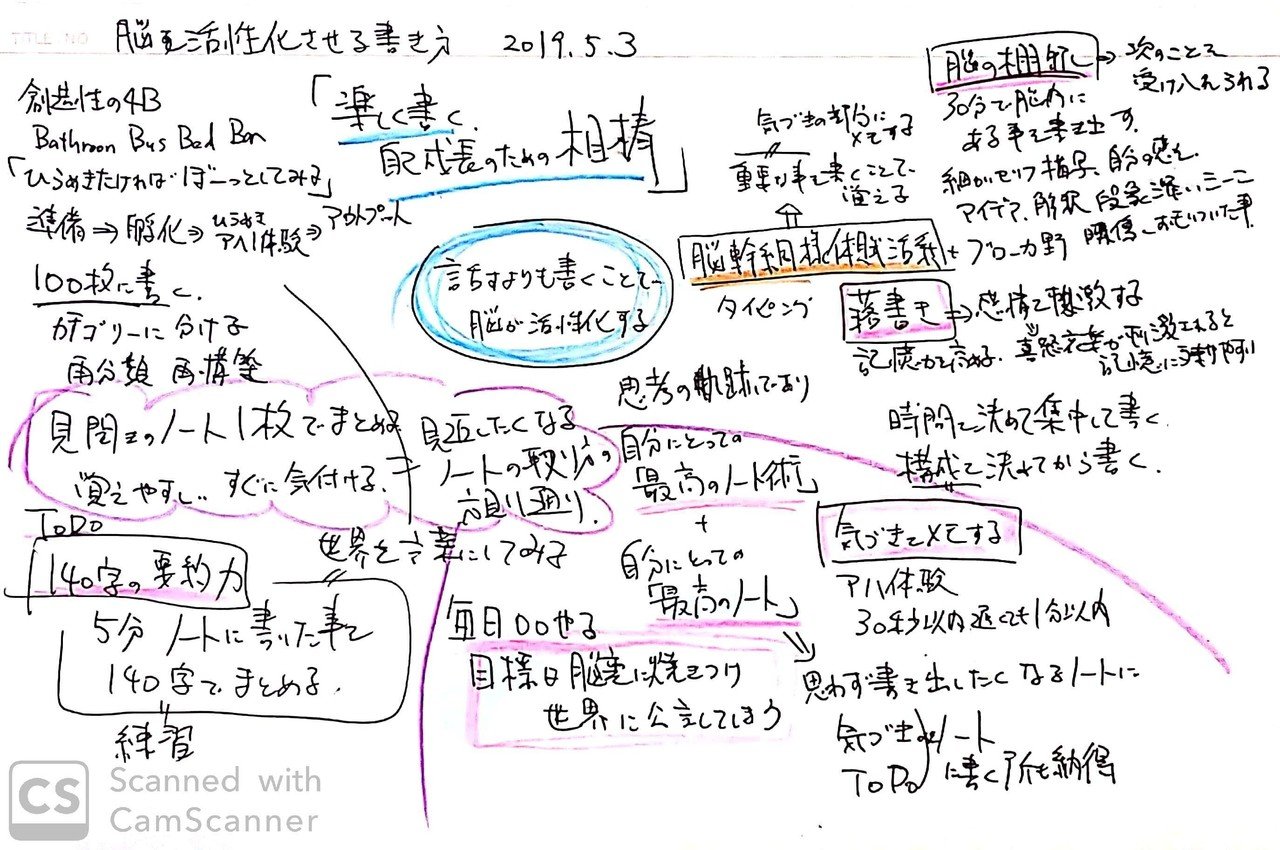 TITLE NO
脳を活性化させる書き方 2019.5.3
創造性の4B
Bathroom Bus Bed Bar
「ひらめきたければぼーっとしてみる」
準備⇒孵化⇒ひらめき アハ!体験⇒アウトプット
「楽しく書く、
自己成長のための相棒」
100枚に書く、
カテゴリーに分ける
再分類 再構築
言話すよりも書くことで
脳が活性化する
気づきの部分に
メモする
重要な事を書くことで、
覚える
脳幹網様体賦活系+ブローカ野
タイピング
脳の棚卸し⇒次のことを
受け入れられる
30分で脳内に
ある事を書き出す。
細かいセリフ 描写、自分の思い、
アイデア、解釈
落書き⇒感情を刺激する
記憶力を高める。
記憶に残りやすい
見開きのノート1枚でまとめる
覚えやすい、すぐに気付ける、
見返したくなる
ノートの取り方の
思考の軌跡であり
自分にとっての
「最高のノート術」
+
自分にとっての
「最高のノート」
時間を決めて集中して書く、
構成を決めてから書く、
気づきをメモする
アハ体験
30秒以内 遅くても1分以内
ToDo
140字の要約力
世界を言葉にしてみる
5分 ノートに書いた事を
140字でまとめる、
練習
毎日〇〇やる
目標は脳裏に焼きつけ
世界に公言してしまう
思わず書き出したくなるノートに
気づき ノート
ToDo に書く 納得
CS Scanned with
CamScanner